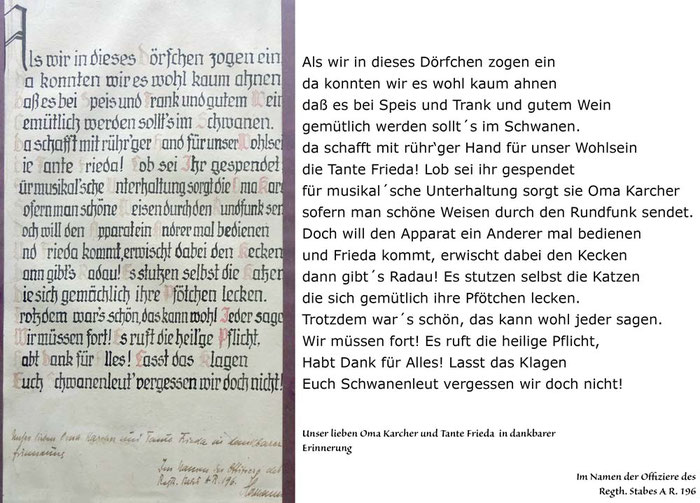 Als wir in dieses Dörfchen zogen ein
da konnten wir es wohl kaum ahnen
daß es bei Speis und Trank und gutem Wein
Gemütlich werden sollt's im Schwanen.
Da schafft mit rühr'ger Hand für unser Wohlsein
die Tante Frieda! Lob sei Ihr gespendet
für musikal'sche Unterhaltung sorgt die Oma Kar
sofern man schöne Weisen durch den Rundfunk sen
Doch will den Apparat ein Andrer mal bedienen
Und Frieda kommt, erwischt dabei den Kecken
dann gibt's Radau! Es stutzen selbst die Katzen
die sich gemächlich ihre Pfötchen lecken.
Trotzdem war's schön, das kann wohl Jeder sage
Wir müssen fort! Es ruft die heil'ge Pflicht,
Habt Dank für Alles! Lasst das Klagen
Euch Schwanenleut' vergessen wir doch nicht!
Unser lieben Oma Karcher und Tante Frieda in dankbarer
Erinnerung
Im Namen der Offiziere des
Regth. Stabes A.R. 196.
Als wir in dieses Dörfchen zogen ein
da konnten wir es wohl kaum ahnen
daß es bei Speis und Trank und gutem Wein
gemütlich werden sollt´s im Schwanen.
da schafft mit rühr‘ger Hand für unser Wohlsein
die Tante Frieda! Lob sei ihr gespendet
für musikal´sche Unterhaltung sorgt sie Oma Karcher
sofern man schöne Weisen durch den Rundfunk sendet.
Doch will den Apparat ein Anderer mal bedienen
und Frieda kommt, erwischt dabei den Kecken
dann gibt´s Radau! Es stutzen selbst die Katzen
die sich gemütlich ihre Pfötchen lecken.
Trotzdem war´s schön, das kann wohl jeder sagen.
Wir müssen fort! Es ruft die heilige Pflicht,
Habt Dank für Alles! Lasst das Klagen
Euch Schwanenleut vergessen wir doch nicht!
Unser lieben Oma Karcher und Tante Frieda in dankbarer
Erinnerung
Im Namen der Offiziere des
Regth. Stabes A R. 196